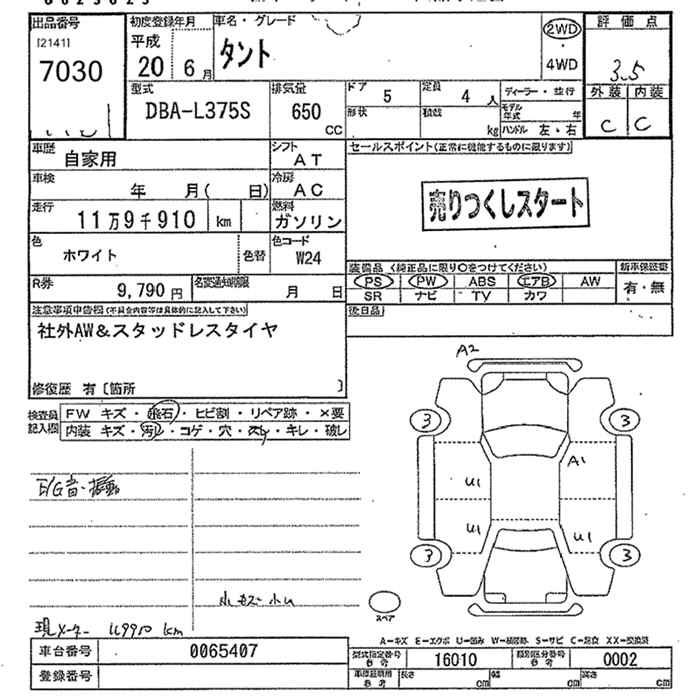 出品番号 初度登録年月 車名・グレード 評価点
[2141] 平成 タント 2WD 3.5
7030 20 6月 4WD
型式 排気量 ドア 5 定員 4人 ディーラー・並行 外装 内装
DBA-L375S 650 CC 形状 積載 kg モデル年式 年 C C
ハンドル 左・右
車歴 自家用 シフト AT セールスポイント(正常に機能するものに限ります)
車検 年 月( 日) 冷房 AC
走行 11万9千910 km 燃料 ガソリン 売りつくしスタート
色 ホワイト 色替 色コード W24
R券 9,790円 名変通知期限 月 日 装備品(純正品に限り○をつけてください) 新車保証書
PS PW ABS エアB AW 有・無
SR ナビ TV カワ
注意事項申告欄(不具合内容等は具体的に記入して下さい) 後日品
社外AW&スタッドレスタイヤ
修復歴 有〔箇所 〕
検査員記入欄 FW キズ・飛石・ヒビ割・リペア跡・×要
内装 キズ・汚レ・コゲ・穴・スレ・キレ・破レ
A2
3 3
A1
U1
U1 U1
3 3
E/G音・振動
小キズ・小U
スペア
現メーター 119910 km
A-キズ E-エクボ U-凹み W-補修跡 S-サビ C-腐食 XX-交換済
車台番号 0065407 型式指定番号 参考 16010 類別区分番号 参考 0002
登録番号 車庫証明用 参考 長さ cm 幅 cm 高さ cm